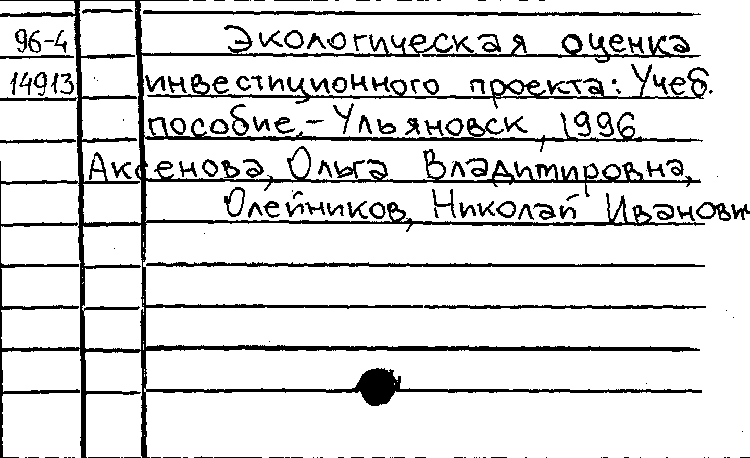 96-4 Экологическая оценка
14913 инвестиционного проекта: Учеб.
пособие.- Ульяновск, 1996
Аксенова, Ольга Владимировна,
Олейников, Николай Иванови